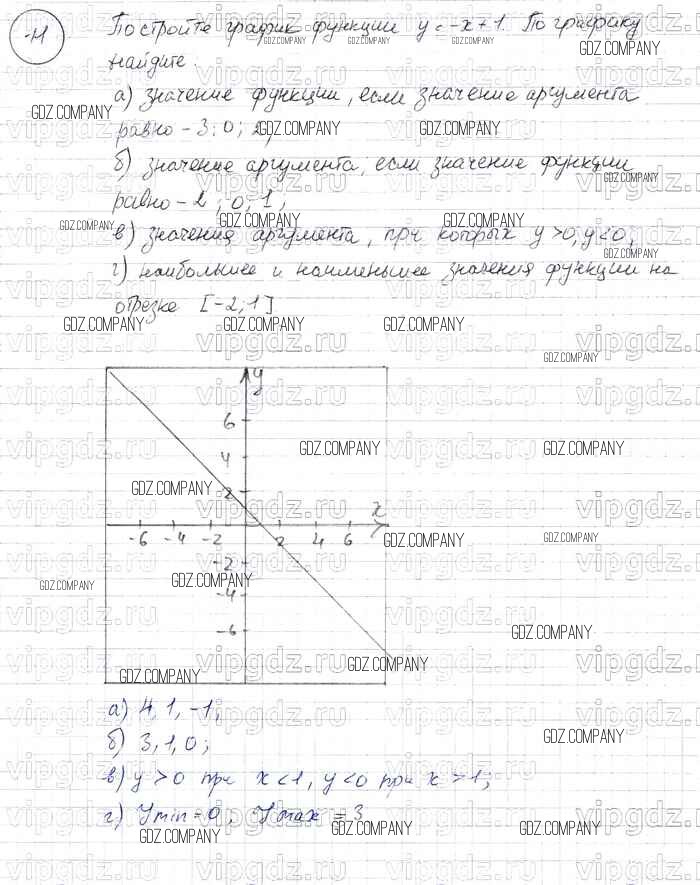 -11
Постройте график функции y = -x + 1. По графику
найдите:
а) значение функции, если значение аргумента
равно -3; 0;
б) значение аргумента, если значение функции
равно -2; 0; 1;
в) значения аргумента, при которых y > 0, y < 0;
г) наибольшее и наименьшее значения функции на
отрезке [-2; 1]
y
6
4
2
x
-6 -4 -2 2 4 6
-2
-4
-6
а) 4, 1, -1;
б) 3, 1, 0;
в) y > 0 при x < 1, y < 0 при x > 1;
г) Ymin = 0, Ymax = 3
GDZ.COMPANY
vipgdz.ru